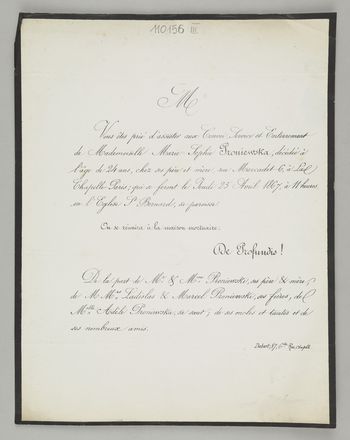 110156 III
M
Vous êtes prié d'assister aux Convoi, Service et Enterrement
de Mademoiselle Marie Sophie Proniewska, décédée à
l'âge de 24 ans, chez ses père et mère, rue Marcadet 6, à La
Chapelle Paris; qui se feront le Jeudi 25 Avril 1867, à 11 heures
en l'Eglise St Bernard, sa paroisse.
On se réunira à la maison mortuaire.
De Profundis!
De la part de Mr & Mme Proniewski, ses père & mère;
de M. Mrs Ladislas & Marcel Proniewski, ses frères, de
Melle Adèle Proniewska, sa sœur; de ses oncles et tantes et de
ses nombreux amis.
37, Gde Rue, Chapelle